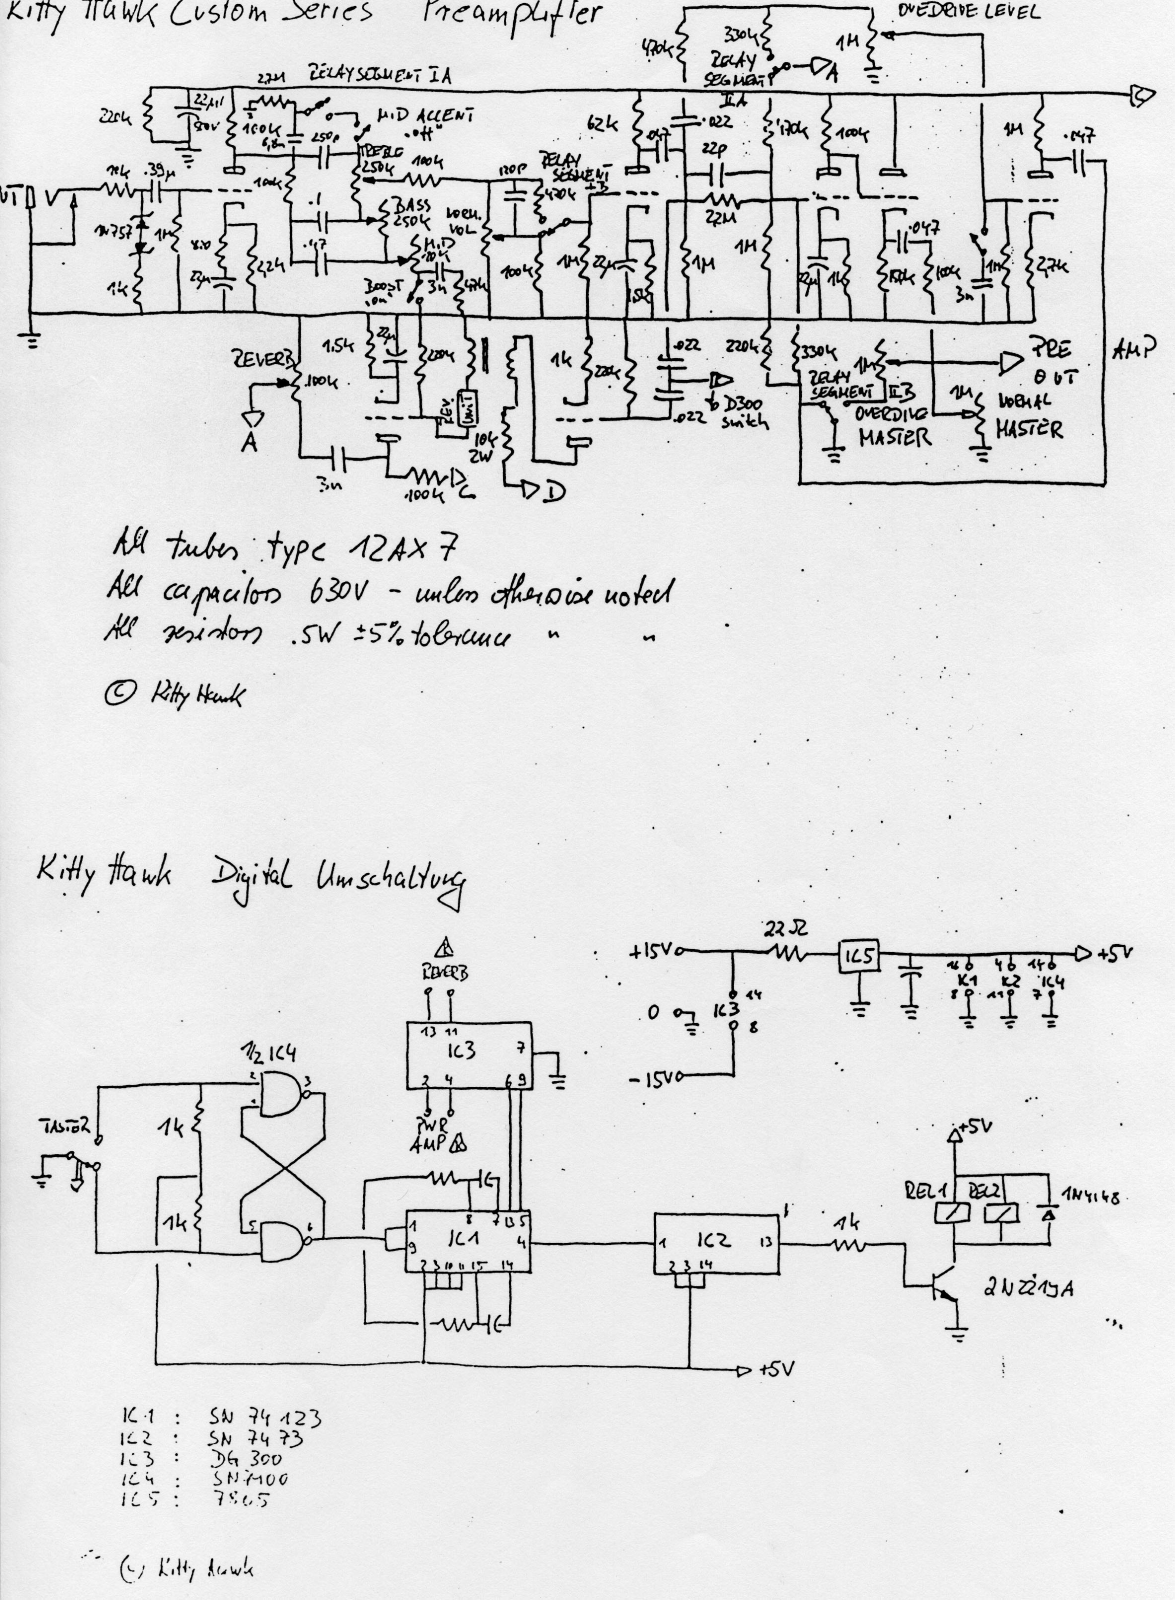 Kitty Hawk Custom Series Preamplifier
OVEDRIVE LEVEL
470k
330k
1M
RELAY SEGMENT IIA
A
2,2M
RELAY SEGMENT IA
220k
22µ
100k
6,8n
250p
MID ACCENT
"off"
62k
.047
.022
22p
170k
100k
1M
.047
C
V
.39µ
TREBLE
250k
100k
120p
RELAY SEGMENT
470k
100k
.1
BASS
250k
NORM.
VOL
2,2M
1N757
1M
820
.047
MID
3n
BOOST
"on"
47k
100k
1M
22µ
1M
1M
22µ
1k
.047
100k
1M
3n
2,7k
1k
22µ
2,2k
REVERB
100k
1.5k
22µ
220k
1k
220k
.022
.022
to D300
switch
220k
330k
1M
RELAY
SEGMENT IIB
OVERDIVE
MASTER
PRE
OUT
1M
NORMAL
MASTER
AMP
A
REV.
UNIT
10k
2W
3n
100k
C
D
All tubes type 12AX7
All capacitors 630V - unless otherwise noted
All resistors .5W ±5% tolerance " "
© Kitty Hawk
Kitty Hawk Digital Umschaltung
REVERB
13 11
IC3
7
2 4 6 9
PWR
AMP
+15V
22Ω
IC5
+5V
0
14
IC3
8
-15V
16 4 14
IC1 IC2 IC4
8 11 7
1/2 IC4
2
3
TASTER
1k
1k
5
6
8 7 13 5
1
9
IC1
4
2 3 10 11 15 14
1
IC2
13
2 3 14
1k
+5V
REL1
REL2
1N4148
2N2219A
+5V
IC1 : SN 74 123
IC2 : SN 74 73
IC3 : DG 300
IC4 : SN7400
IC5 : 7805
(c) Kitty Hawk